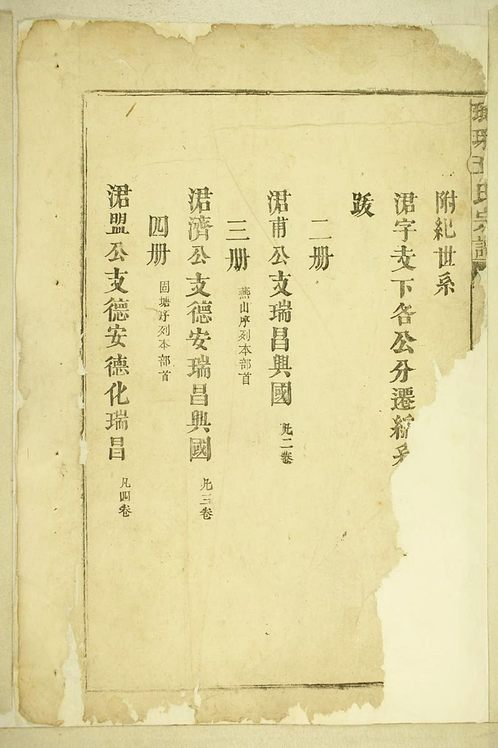 琊王氏宗譜
附紀世系
涒字支下各公分遷綜系
跋
二册
涒甫公支瑞昌興國 凡二卷
三册 燕山序列本部首
涒濟公支德安瑞昌興國 凡三卷
四册 固塘序列本部首
涒盟公支德安德化瑞昌 凡四卷